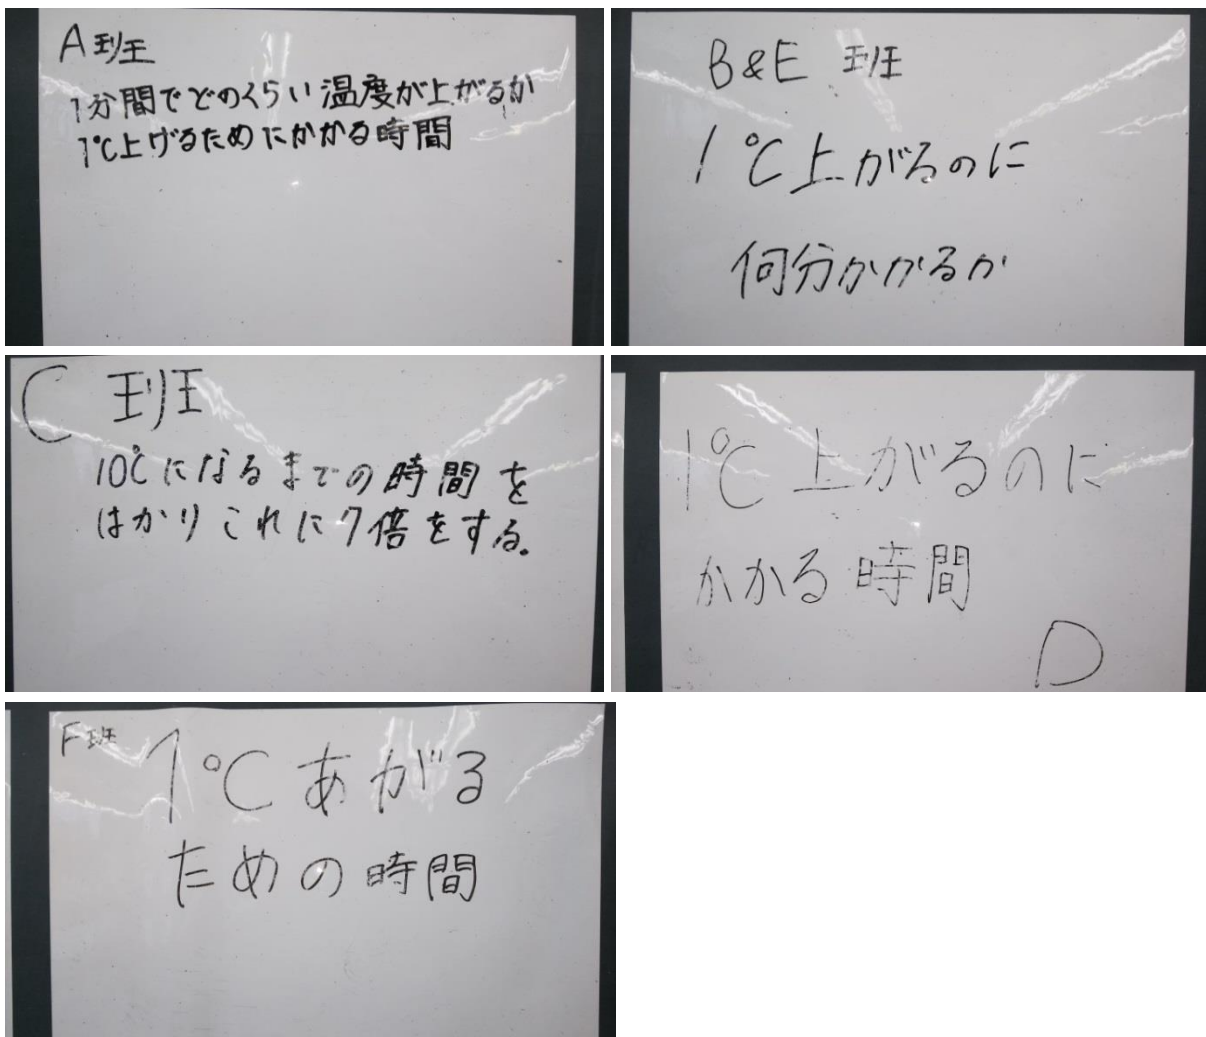 A班
1分間でどのくらい温度が上がるか
1℃上げるためにかかる時間
B&E 班
1℃上がるのに
何分かかるか
C 班
10℃になるまでの時間を
はかりこれに7倍をする。
1℃上がるのに
かかる時間
D
F班
1℃あがる
ための時間